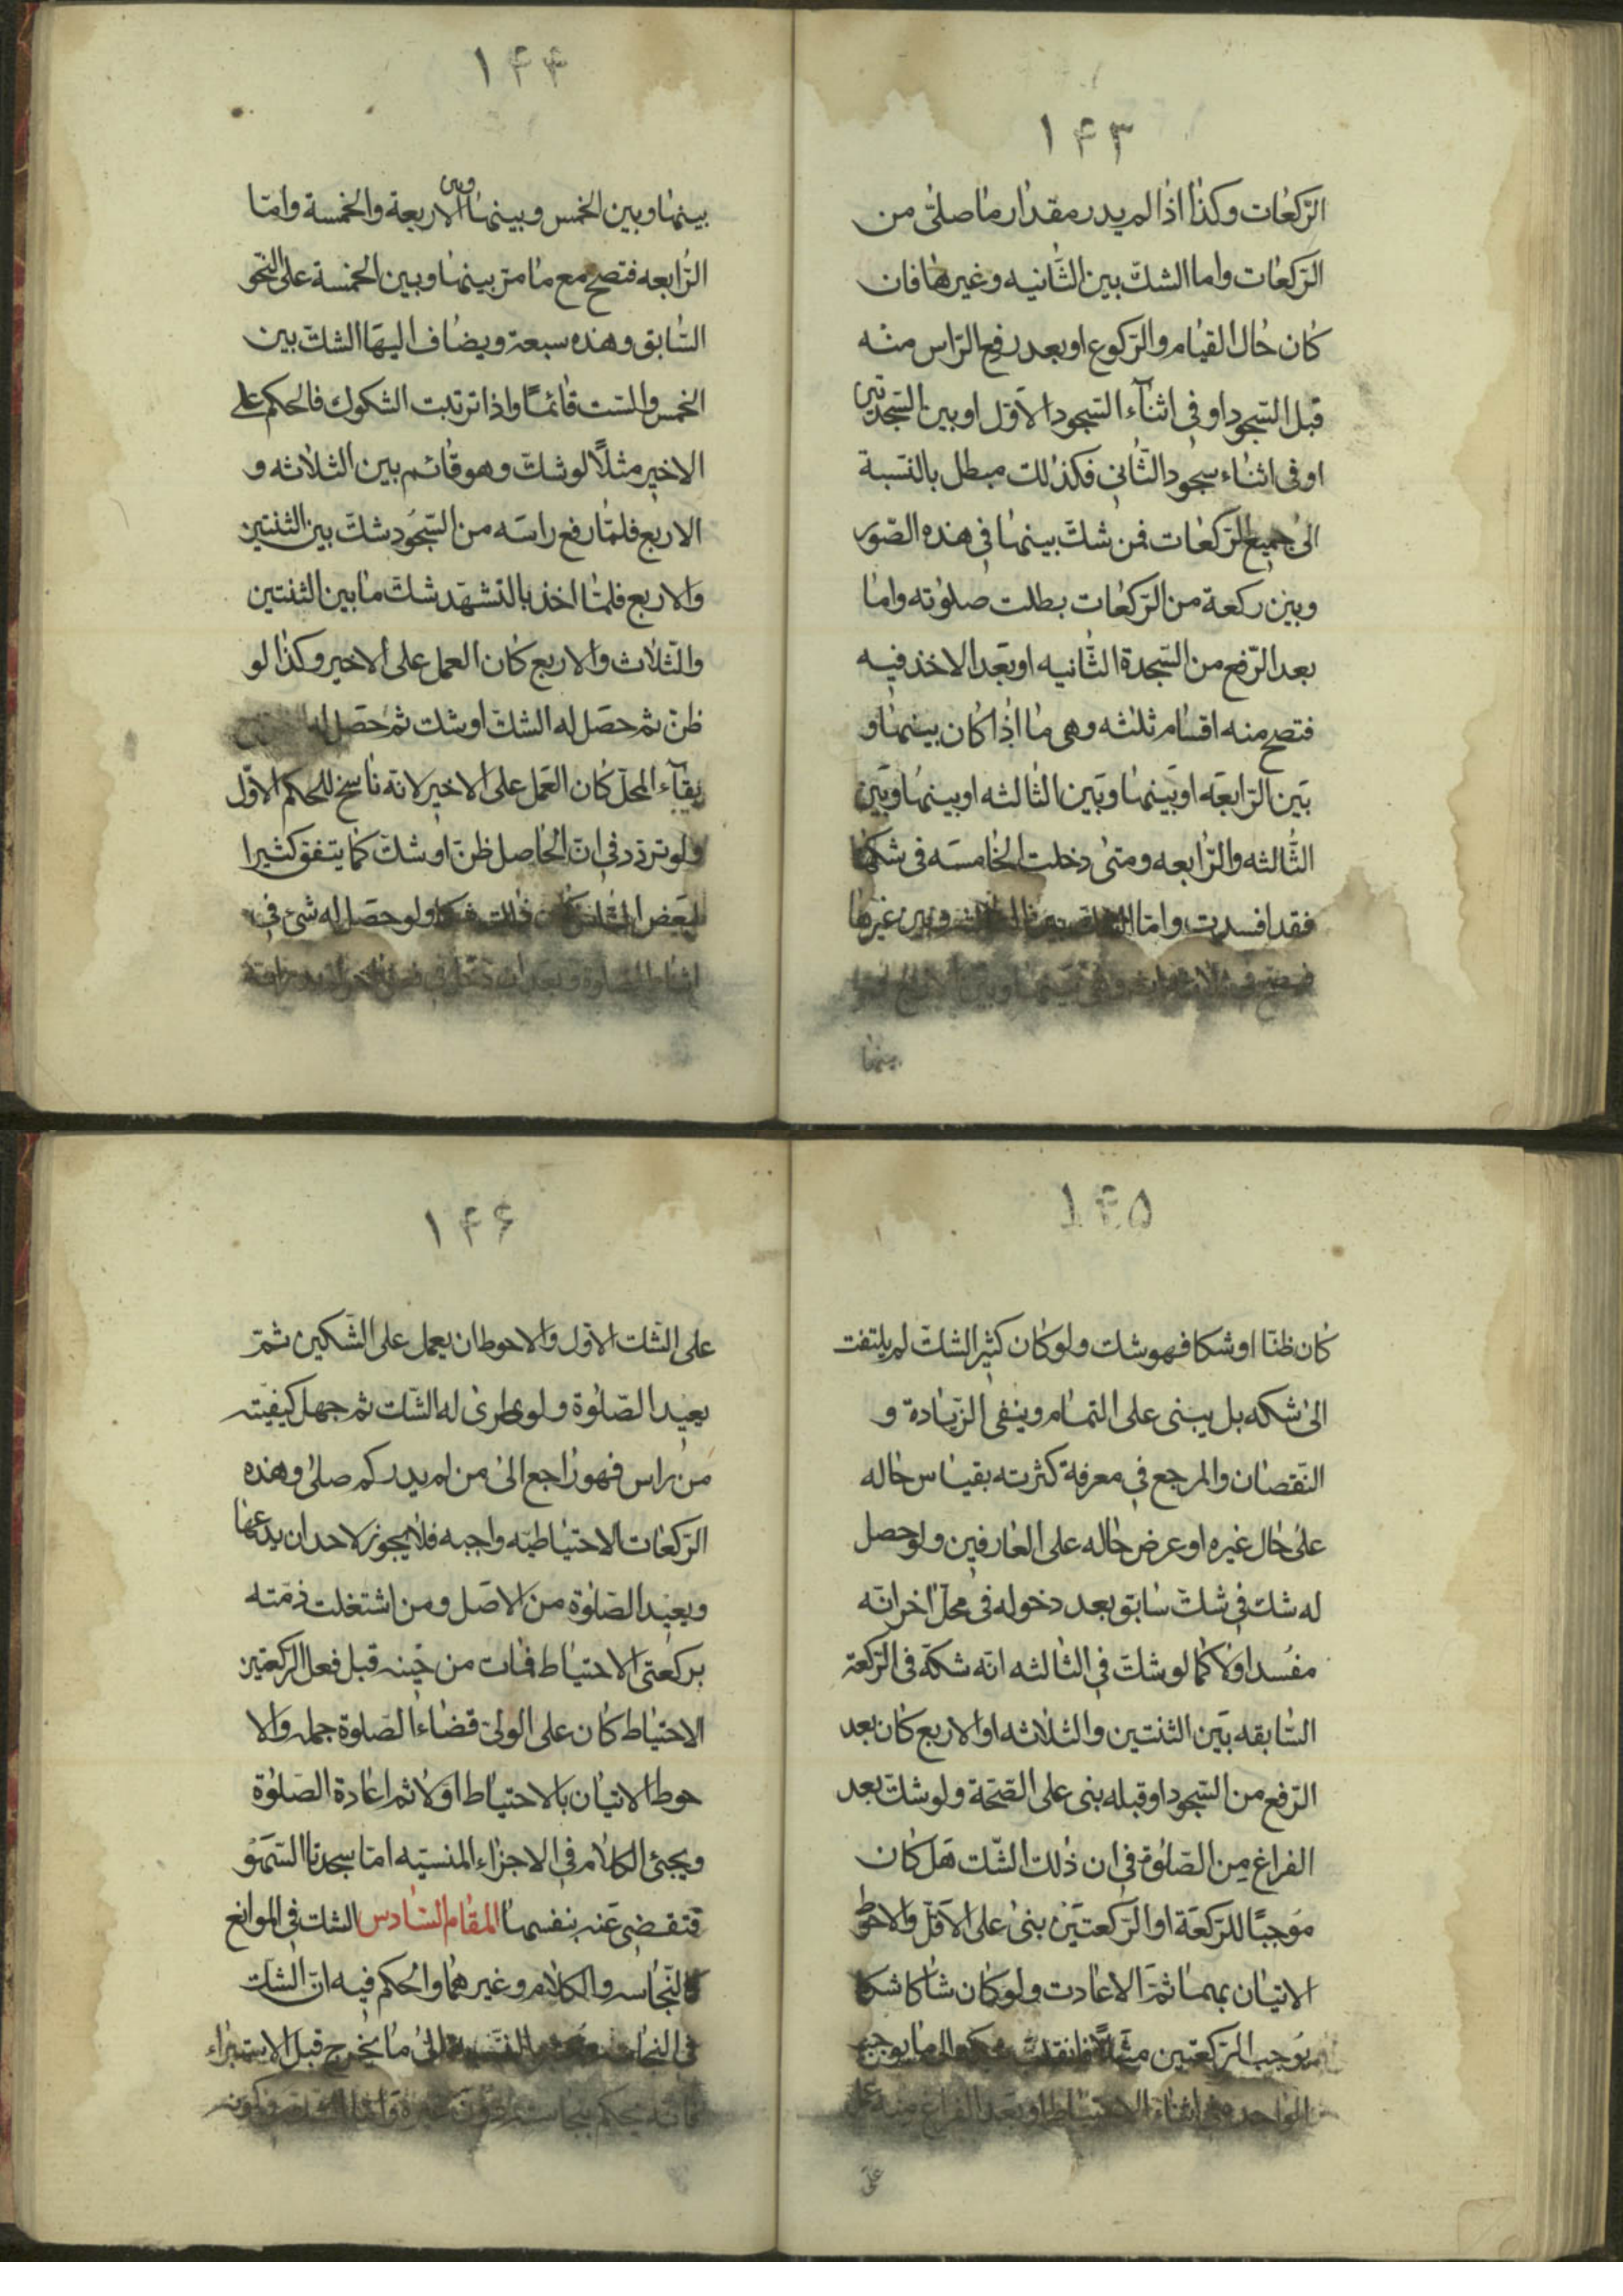 ۱۴۳
الركعات وكذا اذا لم يدر مقدار ما صلى من
الركعات واما الشك بين الثانيه وغيرها فان
كان حال القيام والركوع او بعد رفع الراس منه
قبل السجود او في اثناء السجود الاول او بين السجدتين
او في اثناء سجود الثاني فكذلك مبطل بالنسبة
الى جميع الركعات فمن شك بينها في هذه الصور
وبين ركعة من الركعات بطلت صلوته واما
بعد الرفع من السجدة الثانيه او بعد الاخذ فيه
فتصح منه اقسام ثلثه وهي ما اذا كان بينها و
بين الرابعه او بينها وبين الثالثه او بينها وبين
الثالثه والرابعه ومتى دخلت الخامسه في شكها
فقد افسدت واما وبين غيرها
بينها
۱۴۴
بينها وبين الخمس وبينها وبين الاربعة والخمسة واما
الرابعه فتصح مع ما مر بينها وبين الخمسة على النحو
السابق وهذه سبعة ويضاف اليها الشك بين
الخمس والست قائمًا واذا ترتبت الشكوك فالحكم على
الاخير مثلًا لو شك وهو قائم بين الثلاثه و
الاربع فلما رفع راسه من السجود شك بين الثنتين
والاربع فلما اخذ بالتشهد شك ما بين الثنتين
والثلاث والاربع كان العمل على الاخير وكذا لو
ظن ثم حصل له الشك او شك ثم حصل له
بقاء المحل كان العمل على الاخير لانه ناسخ للحكم الاول
ولو تردد في ان الحاصل ظن او شك كما يتفق كثيرا
لبعض الناس كان ذلك شكا ولو حصل له شئ في
اثناء الصلوة وبعد ان دخل في
۱۴۵
كان ظنا او شكا فهو شك ولو كان كثير الشك لم يلتفت
الى شكه بل يبنى على التمام وينفى الزيادة و
النقصان والمرجع في معرفة كثرته بقياس حاله
على حال غيره او عرض حاله على العارفين ولو حصل
له شك في شك سابق بعد دخوله في محل اخر انه
مفسد اولا كما لو شك في الثالثه انه شكه في الركعة
السابقه بين الثنتين والثلاثه او الاربع كان بعد
الرفع من السجود او قبله بنى على الصحة ولو شك بعد
الفراغ من الصلوة في ان ذلك الشك هل كان
موجبًا للركعة او الركعتين بنى على الاقل والاحوط
الاتيان بهما ثم الاعادت ولو كان شاكا شكا
يوجب الركعتين مثلًا فانقلب شكه الى ما يوجب
الواحده في اثناء الاحتياط او بعد الفراغ منه
على
۱۴۶
على الشك الاول والاحوط ان يعمل على الشكين ثم
يعيد الصلوة ولو طرى له الشك ثم جهل كيفيته
من راس فهو راجع الى من لم يدر كم صلى وهذه
الركعات الاحتياطيه واجبه فلا يجوز لاحد ان يدعها
ويعيد الصلوة من الاصل ومن اشتغلت ذمته
بركعتى الاحتياط فمات من حينه قبل فعل الركعتين
الاحتياط كان على الولى قضاء الصلوة جمله والا
حوط الاتيان بالاحتياط اولا ثم اعادة الصلوة
ويجئ الكلام في الاجزاء المنسيه اما سجدتا السهو
فتقضى عنه بنفسها المقام السادس الشك في الموانع
كالنجاسه والكلام وغيرهما والحكم فيه ان الشك
في النجاسة الى ما يخرج قبل الاستبراء
فانه يحكم بنجاسته دون غيره